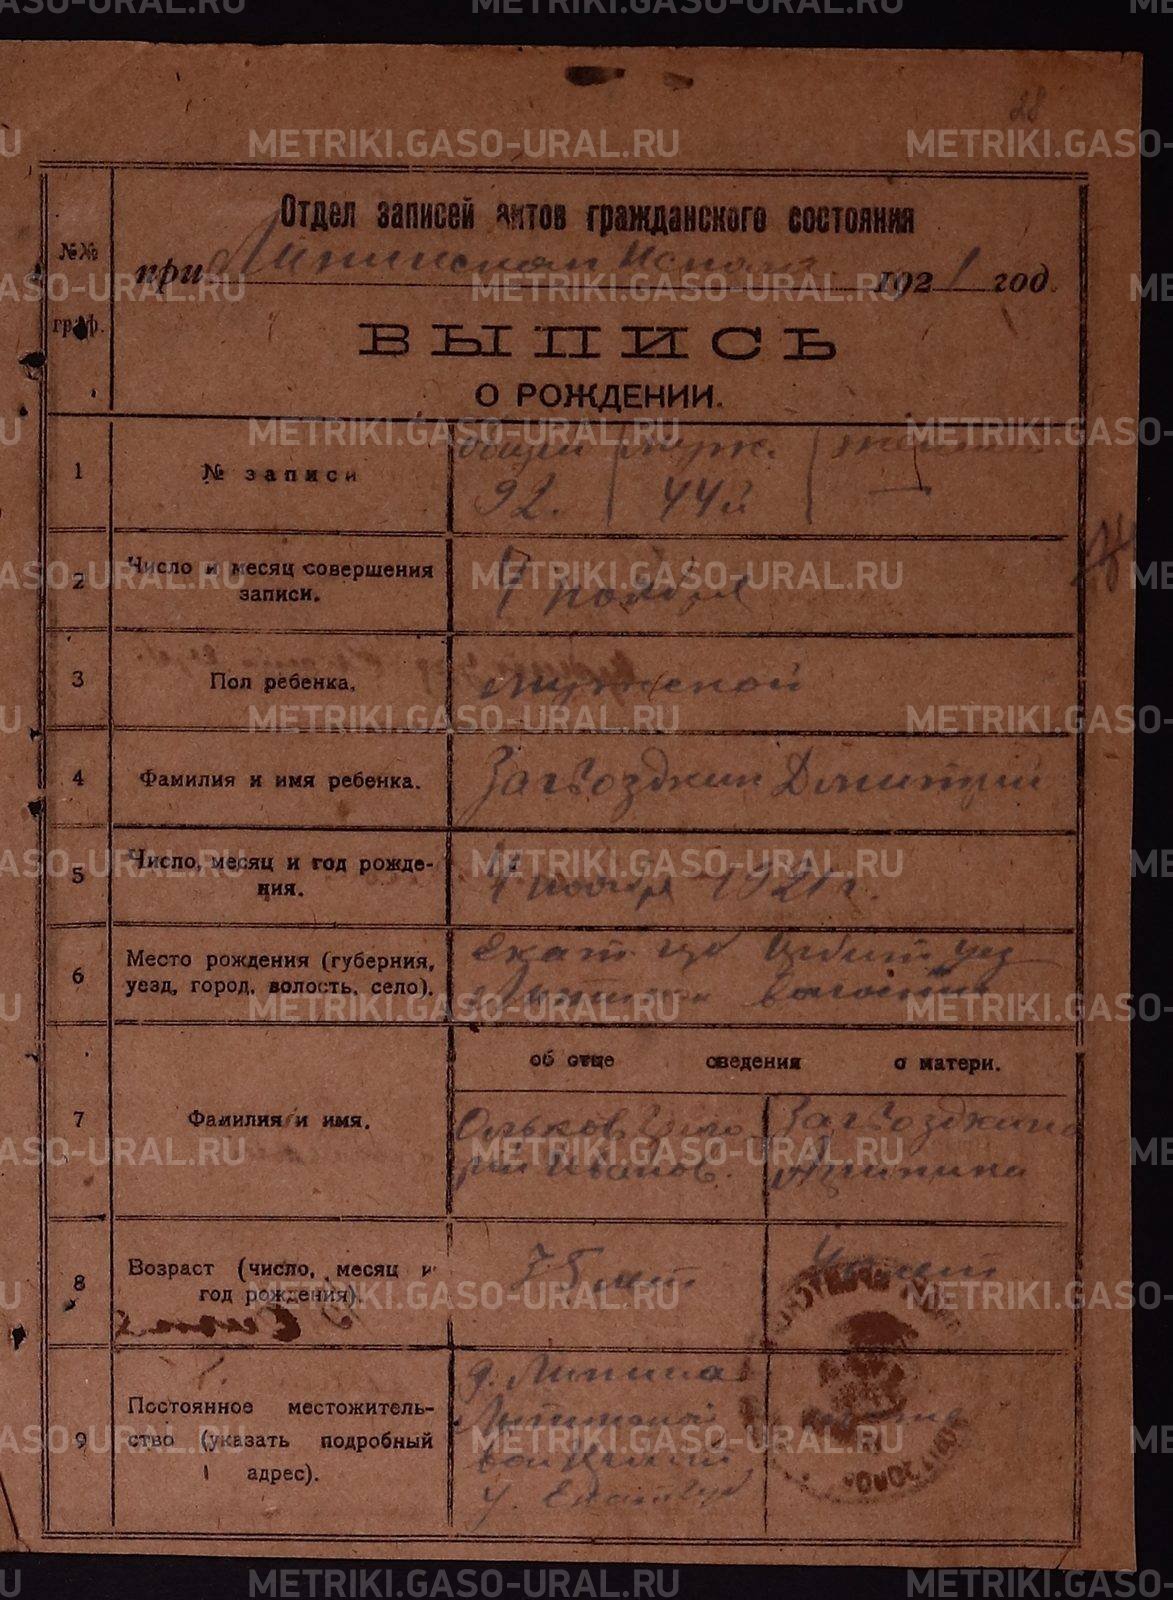 28
Отдел записей актов гражданского состояния
№№ граф.
при Липинском Исполк. 1921 год.
ВЫПИСЬ
О РОЖДЕНИИ.
1 № записи общий 92. мужск. 44й женск —
2 Число и месяц совершения записи. 7 ноября
3 Пол ребенка. Мужской
4 Фамилия и имя ребенка. Загвоздкин Дмитрий
5 Число, месяц и год рождения. 4 ноября 1921 г.
6 Место рождения (губерния, уезд, город, волость, село). Екат. губ Ирбит уез
Липинской волости
об отце сведения о матери.
7 Фамилия и имя. Ольков Иванов. Загвоздкина
8 Возраст (число, месяц и год рождения). лет лет
9 Постоянное местожительство (указать подробный адрес). д. Липина
Липинской
вол
у. Екат губ
METRIKI.GASO-URAL.RU